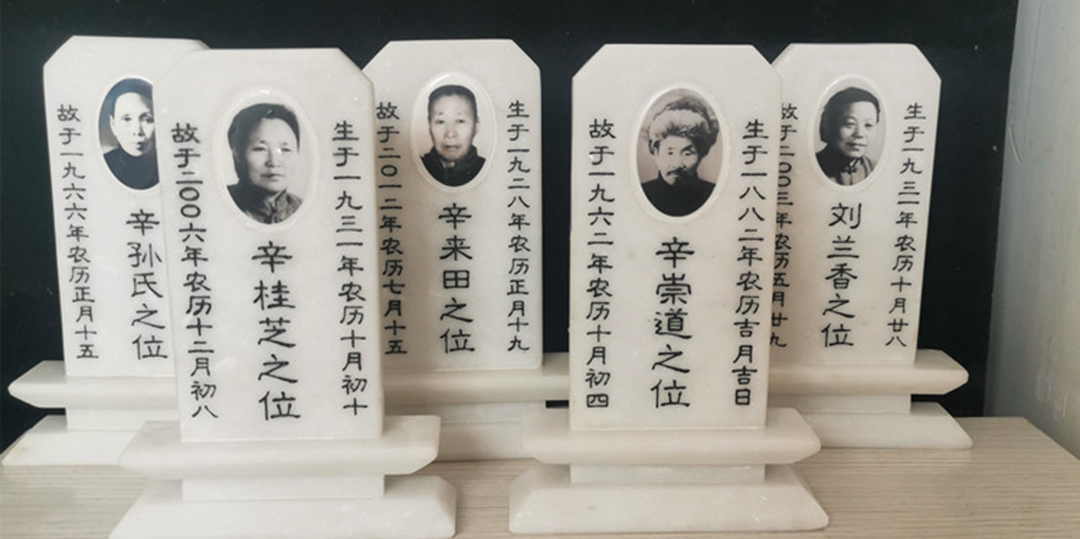 故于一九六六年农历正月十五
辛孙氏之位
生于一九三一年农历十月初十
辛桂芝之位
故于二00六年农历十二月初八
生于一九二八年农历正月十九
辛来田之位
故于二0一二年农历七月十五
生于一八八二年农历吉月吉日
辛崇道之位
故于一九六二年农历十月初四
生于一九三一年农历十月廿八
刘兰香之位
故于二00三年农历五月廿九